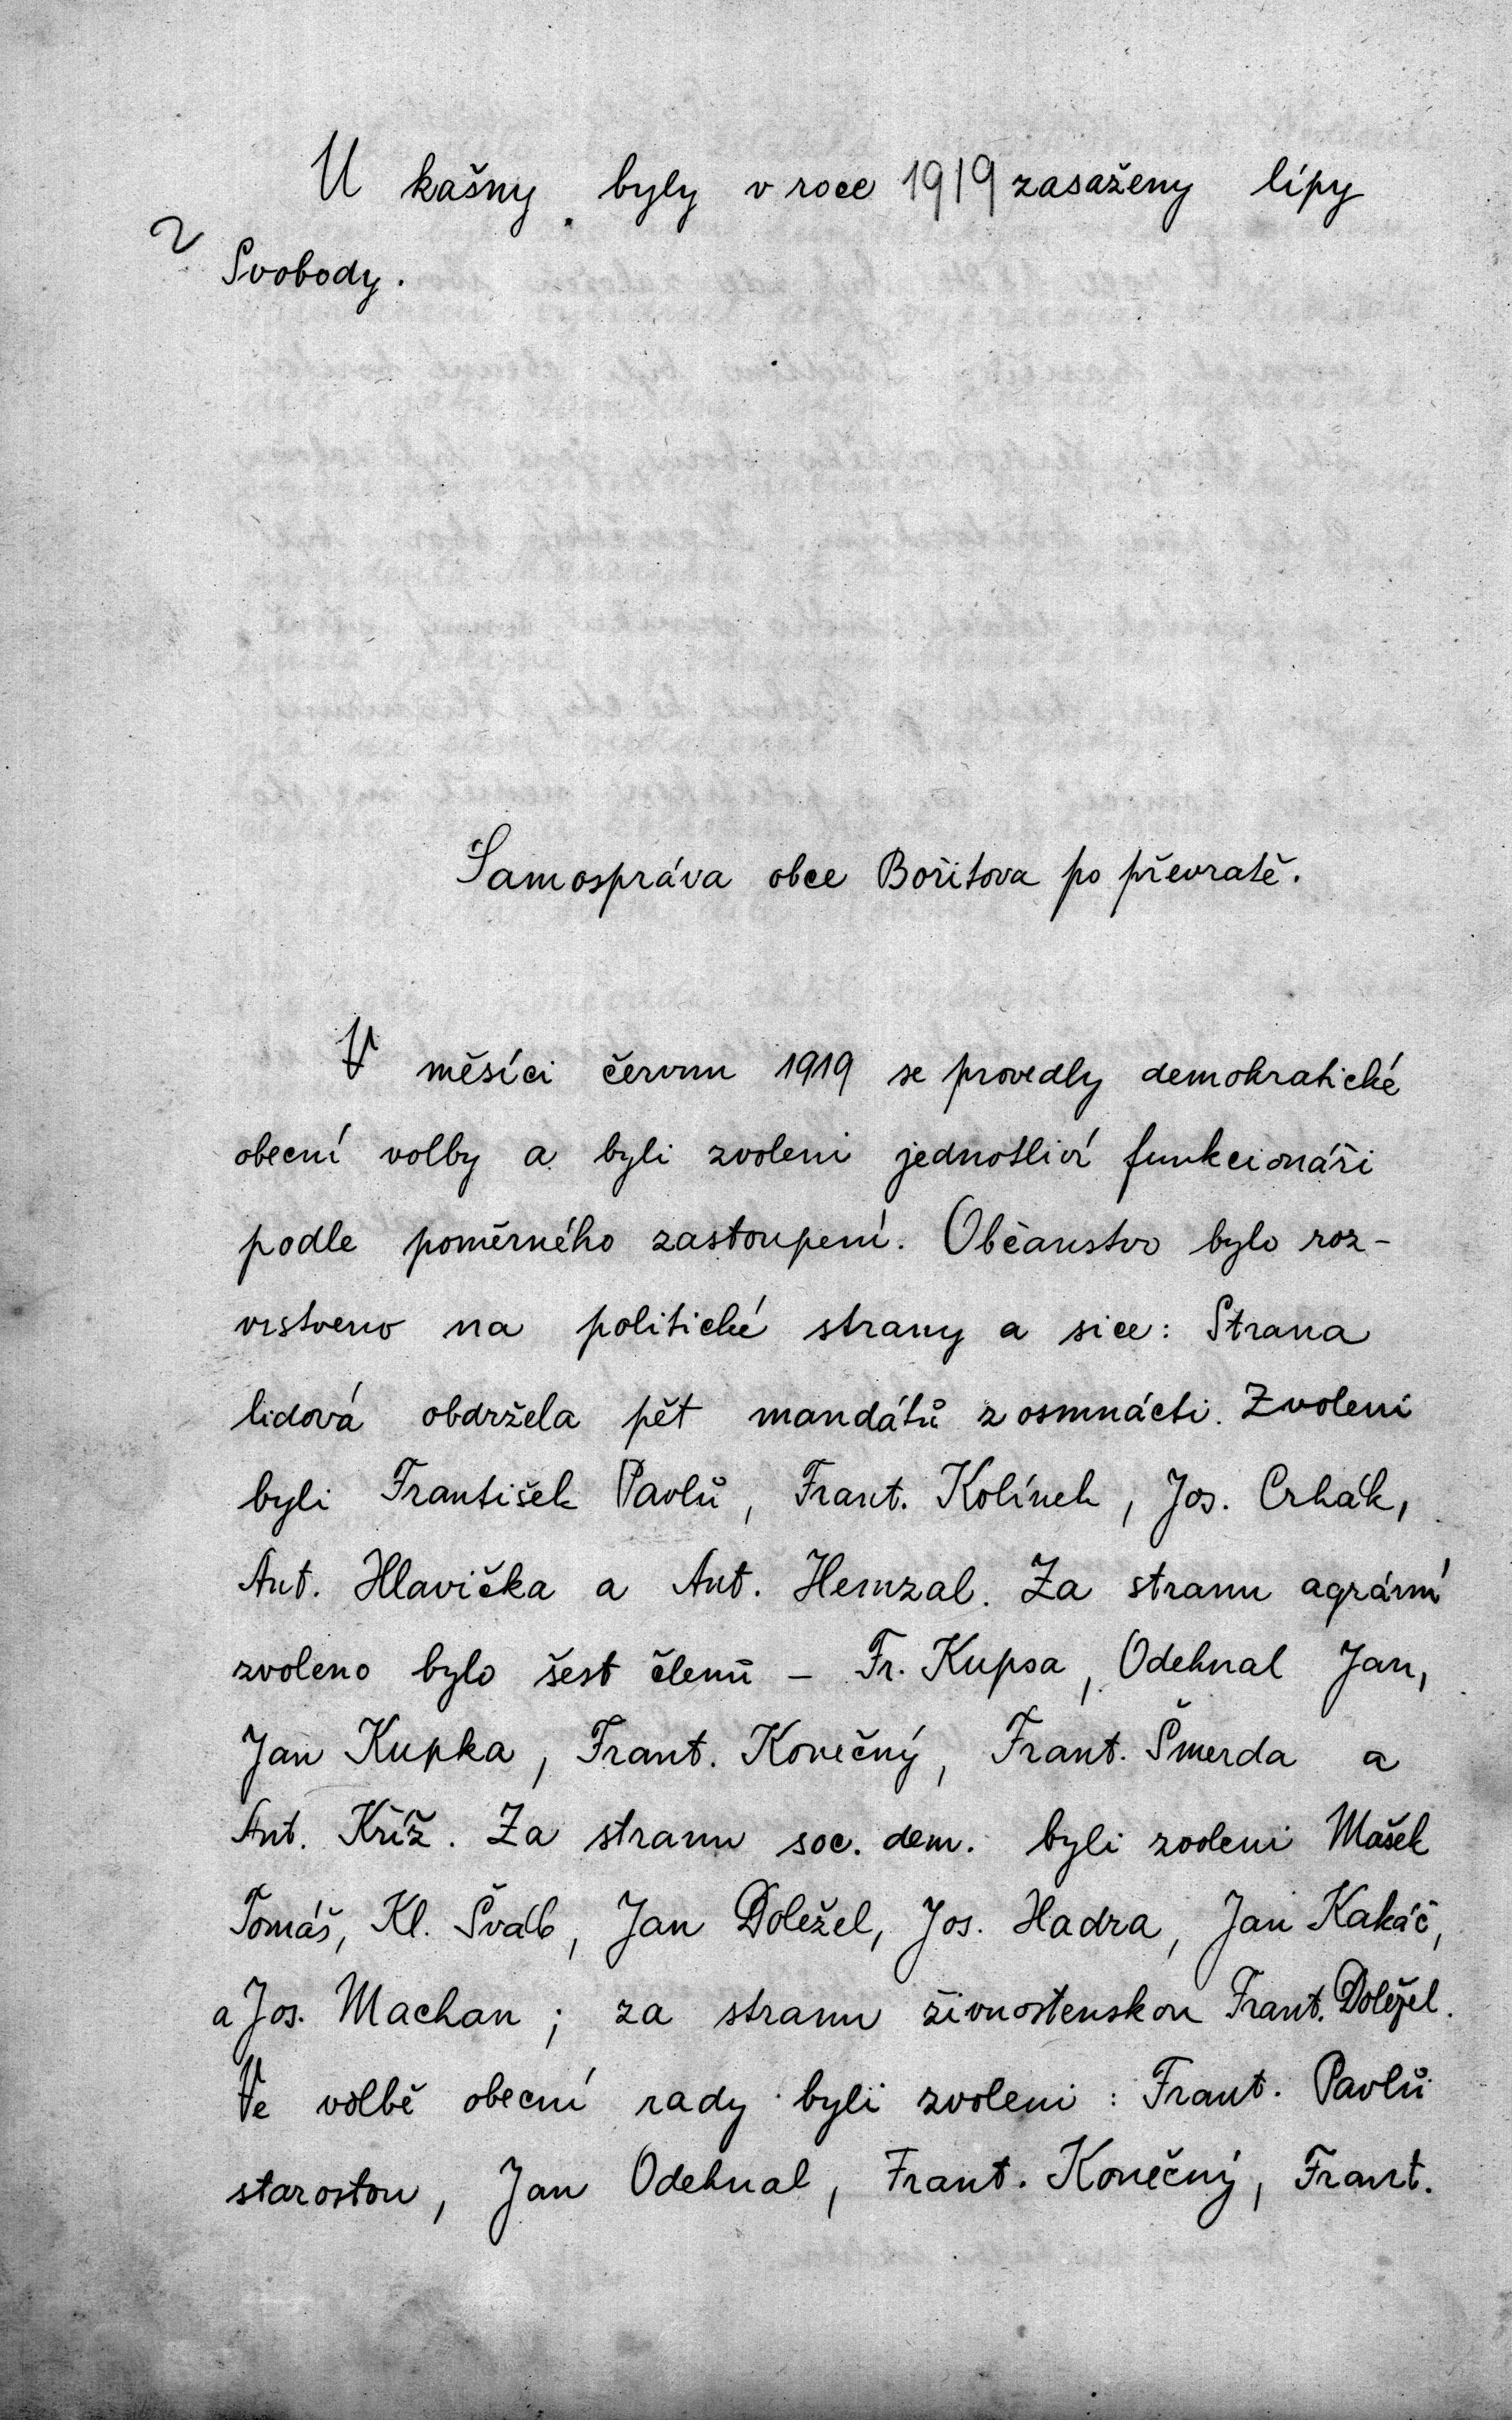 U kašny byly v roce 1919 zasaženy lípy
Svobody.
Samospráva obce Bořitova po převratě.
V měsíci červnu 1919 se provedly demokratické
obecní volby a byli zvoleni jednotliví funkcionáři
podle poměrného zastoupení. Občanstvo bylo roz-
vrstveno na politické strany a sice: Strana
lidová obdržela pět mandátů z osmnácti. Zvoleni
byli František Pavlů, Frant. Kolínek, Jos. Crhák,
Ant. Hlavička a Ant. Hemzal. Za stranu agrární
zvoleno bylo šest členů – Fr. Kupsa, Odehnal Jan,
Jan Kupka, Frant. Konečný, Frant. Šmerda a
Ant. Kříž. Za stranu soc. dem. byli zvoleni Mašek
Tomáš, Kl. Šváb, Jan Doležel, Jos. Hadra, Jan Kakáč,
a Jos. Machan; za stranu živnostenskou Frant. Doležel.
Ve volbě obecní rady byli zvoleni: Frant. Pavlů
starostou, Jan Odehnal, Frant. Konečný, Frant.